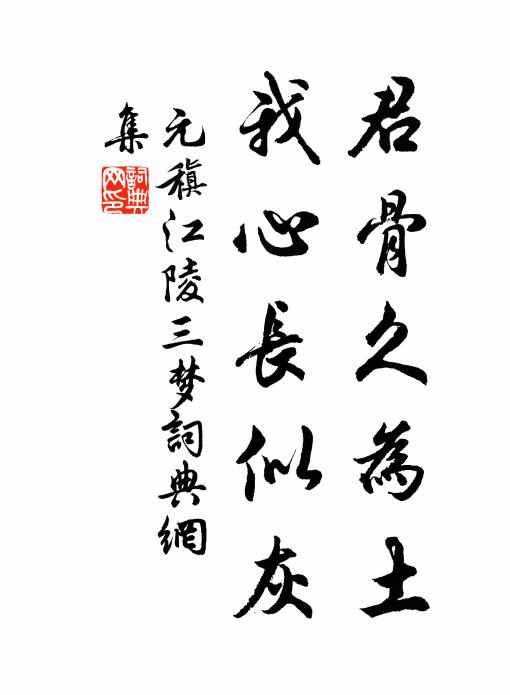 君骨久為土
我心長似灰
元稹江陵三梦詞典網
集
詞典
网印